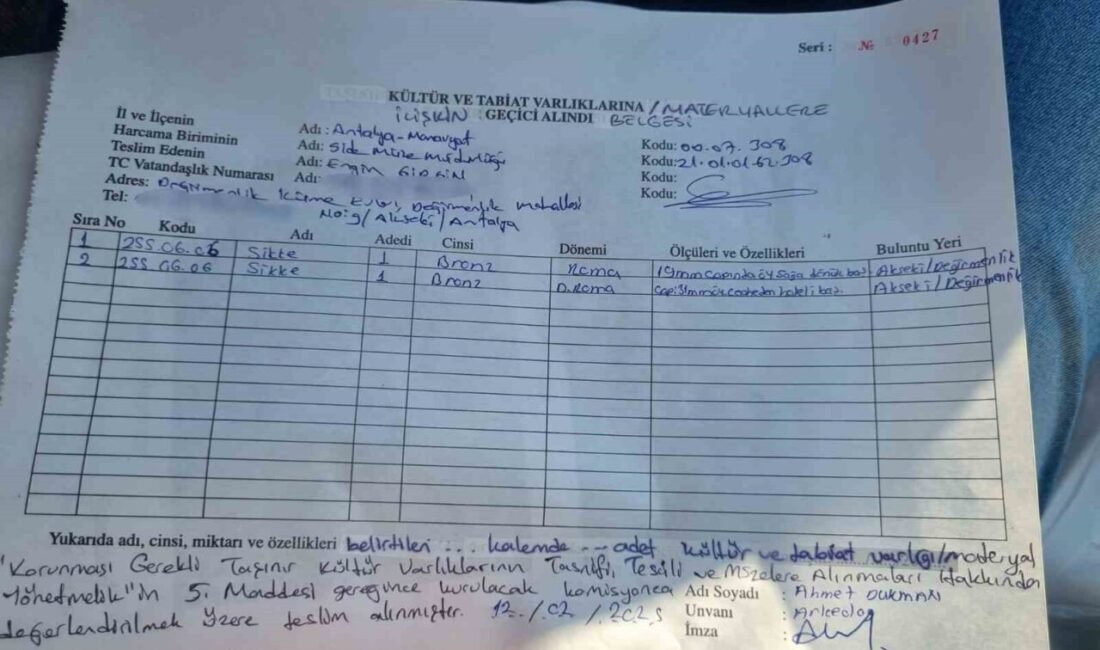 Seri : № 0427
KÜLTÜR VE TABİAT VARLIKLARINA / MATERYALLERE
İLİŞKİN GEÇİCİ ALINDI BELGESİ
İl ve İlçenin Adı : Antalya-Manavgat Kodu: 00.07.308
Harcama Biriminin Adı: Side Müze Müdürlüğü Kodu: 21.01.01.62.308
Teslim Edenin Adı: Engin Kodu:
TC Vatandaşlık Numarası Adı Kodu:
Adres: Değirmenlik Küme Evleri, Değirmenlik Mahallesi
Tel: No:9/ Akseki / Antalya
Sıra No Kodu Adı Adedi Cinsi Dönemi Ölçüleri ve Özellikleri Buluntu Yeri
1 255.06.06 Sikke 1 Bronz Roma 19mm çapında öy sağa dönük baş Akseki / Değirmenlik
2 255.06.06 Sikke 1 Bronz D.Roma Çap:31mm Akseki / Değirmenlik
Yukarıda adı, cinsi, miktarı ve özellikleri belirtilen ... kalemde ... adet kültür ve tabiat varlığı/materyal
"Korunması Gerekli Taşınır Kültür Varlıklarının Tasnifi, Tescili ve Müzelere Alınmaları Hakkında
Yönetmelik"in 5. Maddesi gereğince kurulacak komisyonca Adı Soyadı : Ahmet
değerlendirilmek üzere teslim alınmıştır. 12../02/2025 Unvanı : Arkeolog
İmza :